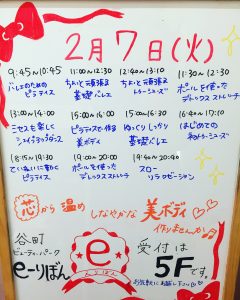 2月7日(火)
9:45~10:45
バレエのための
ピラティス
11:00~12:30
ちょっと頑張る
基礎バレエ
12:40~13:10
ちょっと頑張る
トゥシューズ
11:30~12:30
ポールを使った
デトックスストレッチ
13:00~14:00
ミセスを楽しむ
13:00~14:00
ピラティスで作る
美ボディ
15:00~16:00
ゆっくりしっかり
基礎バレエ
16:40~17:10
はじめての
トゥシューズ
18:15~19:30
ピラティス
19:00~20:00
ポールを使った
デトックスストレッチ
19:40~20:40
スロー
リラクゼーション
芯から温め
しなやかな美ボディ
作りませんか
谷町
ビューティーパーク
e-りぼん
e
えんりぼん
受付は
5Fです。